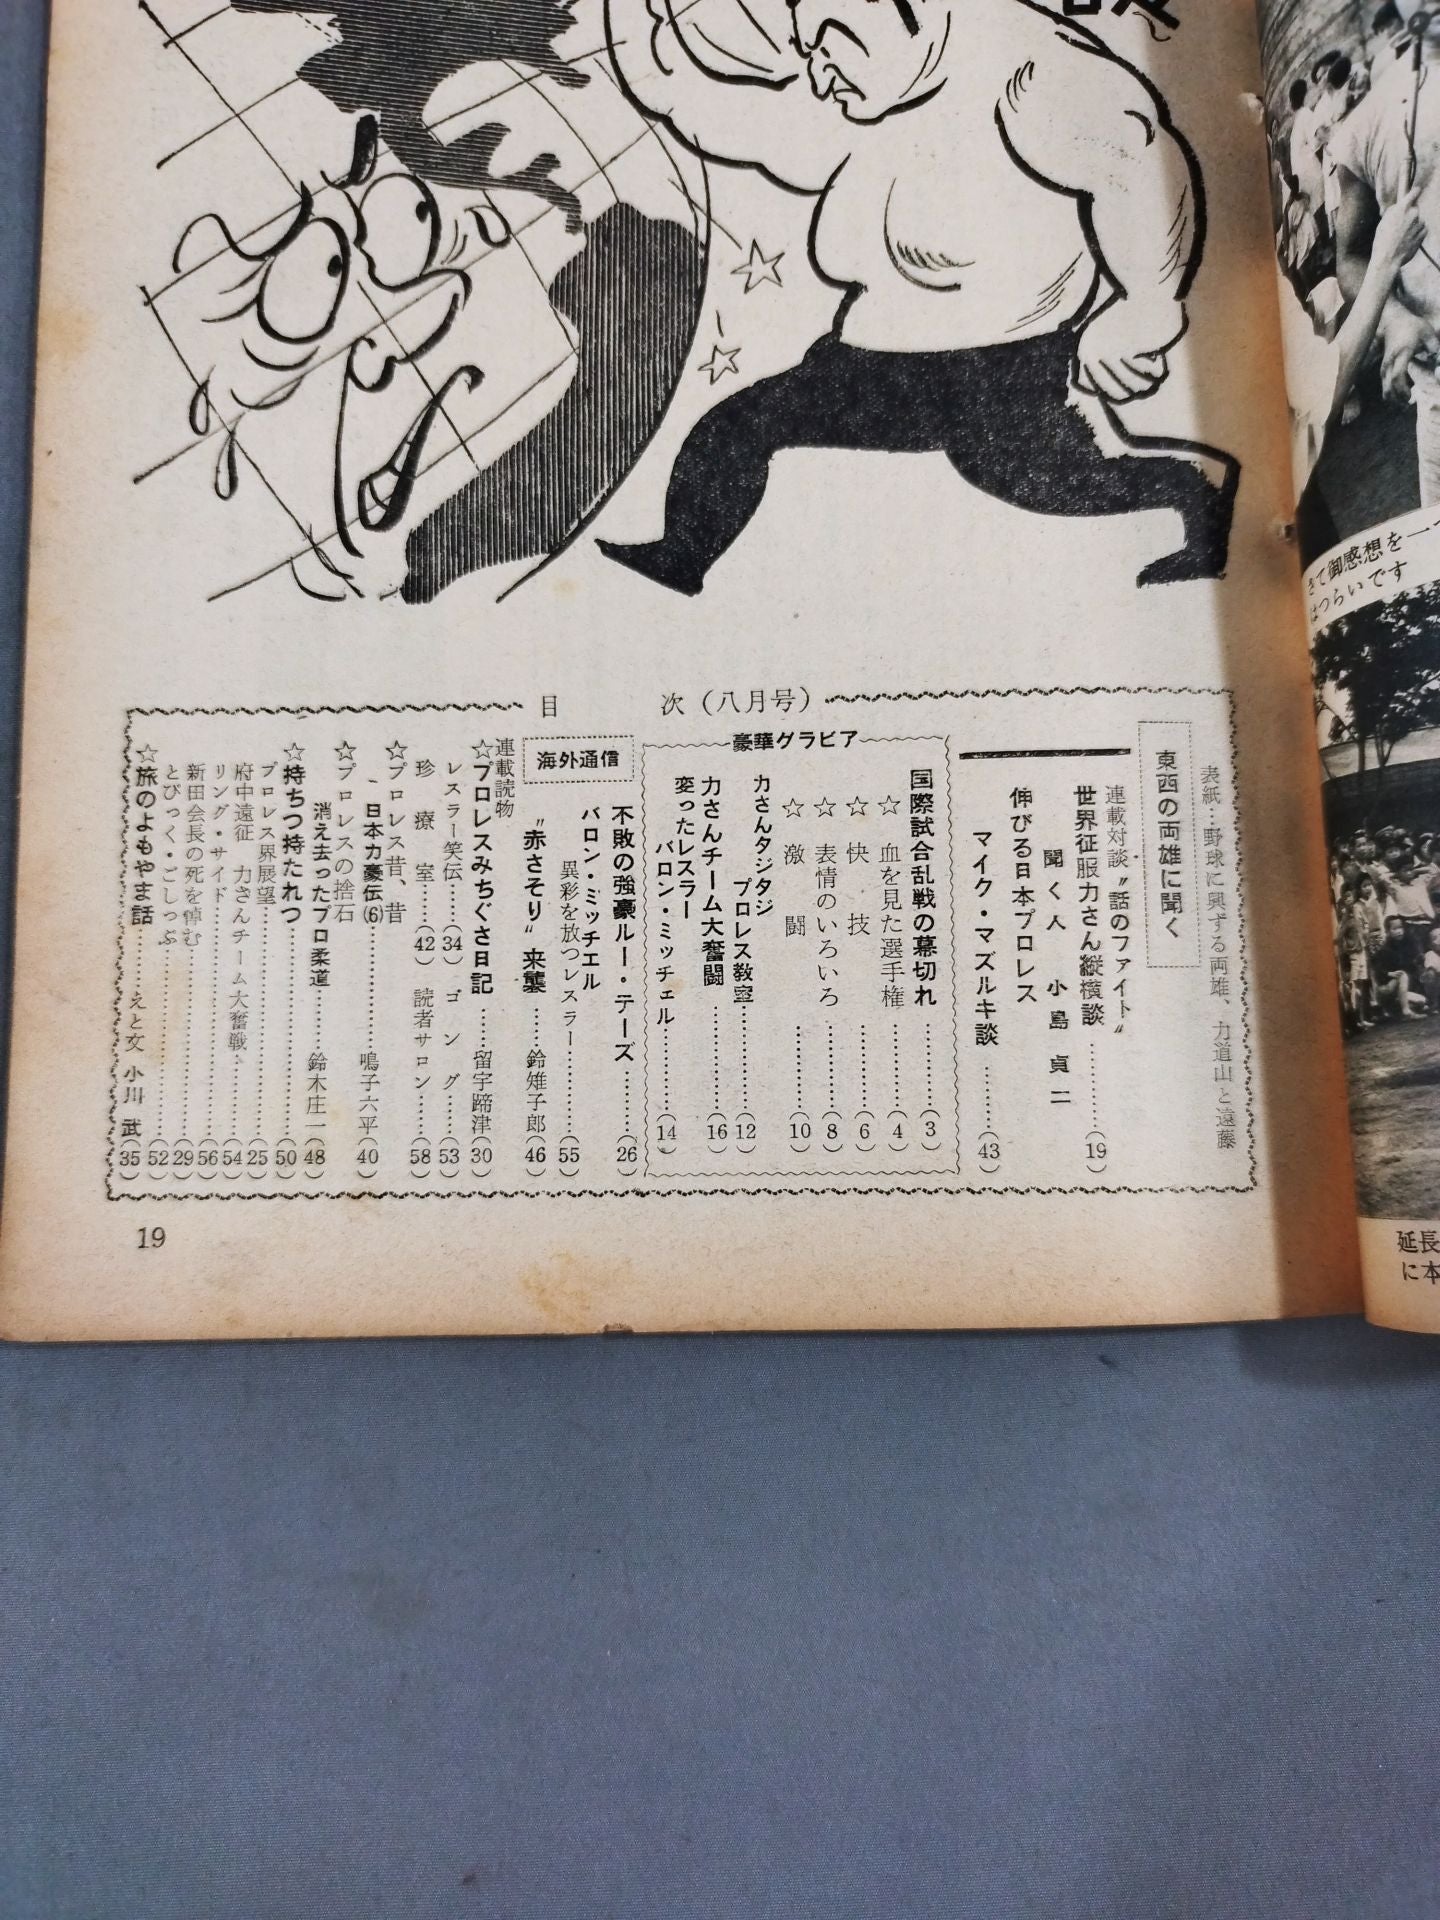 目　次（八月号）
表紙…野球に興ずる両雄、力道山と遠藤
東西の両雄に聞く
連載対談〝話のファイト〟
世界征服力さん縦横談…………(19)
聞く人　小島貞二
伸びる日本プロレス
マイク・マズルキ談…………(43)
豪華グラビア
国際試合乱戦の幕切れ…………(3)
☆血を見た選手権…………(4)
☆快技…………(6)
☆表情のいろいろ…………(8)
☆激闘…………(10)
力さんタジタジ
プロレス教室…………(12)
力さんチーム大奮闘…………(16)
変ったレスラー
バロン・ミッチェル…………(14)
海外通信
不敗の強豪ルー・テーズ…………(26)
バロン・ミッチエル
異彩を放つレスラー…………(55)
〝赤さそり〟来襲……鈴雉子郎(46)
連載読物
☆プロレスみちぐさ日記……留宇蹄津(30)
レスラー笑伝……(34)　ゴング……(53)
珍療室……(42)　読者サロン……(58)
☆プロレス昔、昔
日本力豪伝(6)…………鳴子六平(40)
☆プロレスの捨石
消え去ったプロ柔道…………鈴木庄一(48)
☆持ちつ持たれつ…………(50)
プロレス界展望…………(25)
府中遠征　力さんチーム大奮戦…(54)
リング・サイド…………(56)
新田会長の死を悼む…………(29)
とぴっく・ごしっぷ…………(52)
☆旅のよもやま話…………えと文　小川　武(35)
19
きて御感想を一
はつらいです
延長
に本